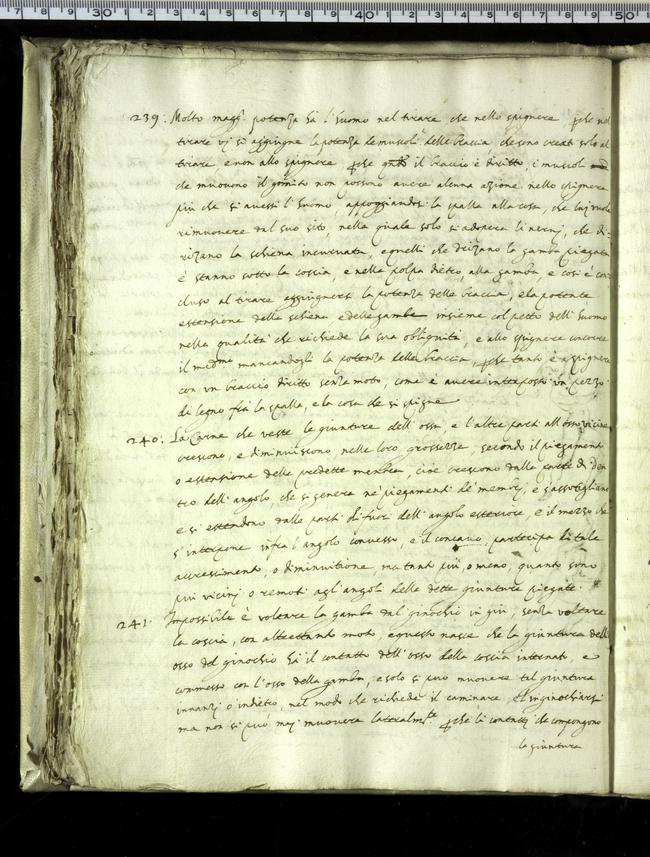 7 30 40 50
239. Molto magg.r potenza hà l'huomo nel tirare che nello spignere, perche nel
tirare vi si aggiugne la potenza de muscoli delle braccia che sono creati solo al
tirare e non allo spignere perche qndo il braccio è diritto, i muscoli
che muouono il gomito non possono auere alcuna azione nello spignere
più che si auessi l'huomo appoggiando la spalla alla cosa, che lui vuole
rimuouere dal suo sito, nella quale solo si adopera li nerui, che di-
rizano la schiena incuruata, e quelli che drizano la gamba piegata
è stanno sotto la coscia, e nella polpa dietro, alla gamba, e cosi è con
cluso al tirare aggiugnersi la potenza delle braccia, e la potente
estensione della schiena e delle gambe insieme col petto dell'huomo
nella qualità che richiede la sua obliquità, e allo spignere concorre
il medmo mancandogli la potenza delle braccia, perche tanto è a spignere
con un braccio diritto senza moto, come è auere interposti un pezzo
di legno frà la spalla, e la cosa che si spigne
240. La Carne che veste le giunture dell'ossa, e l'altre parti all'osso vicine
crescono, e diminuiscono nelle loro grossezze, secondo il piegamenti
o estensione delle predette membra, cioè crescono dalla parte di den
tro dell'angolo, che si genera ne' piegamenti de' membri, e s'assottigliano
e si estendono dalle parti di fuori dell'angolo esteriore, e il mezzo che
s'interpone infra l'angolo conuesso, e il concauo, partecipa di tale
accrescimento, o diminuitione ma tanto più, o meno, quanto sono
più vicini o remoti agl'angoli delle dette giunture piegate.
241. Impossibile è voltare la gamba dal ginochio in giù, senza voltare
la coscia, con altrettanto moto, e questo nasce che la giuntura dell'
osso del ginochio hà il contatto dell'osso della coscia internato, e
commesso con l'osso della gamba, e solo si può muouere tal giuntura
innanzi o indietro, nel modo che richiede il caminare, e l'inginochiarsi
ma non si può mai muouere lateralmte. perche li contatti che compongono
la giuntura